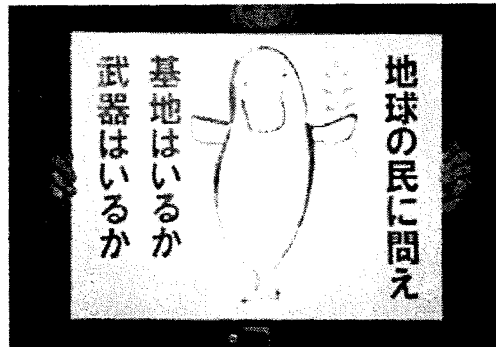 地球の民に問え
基地はいるか
武器はいるか